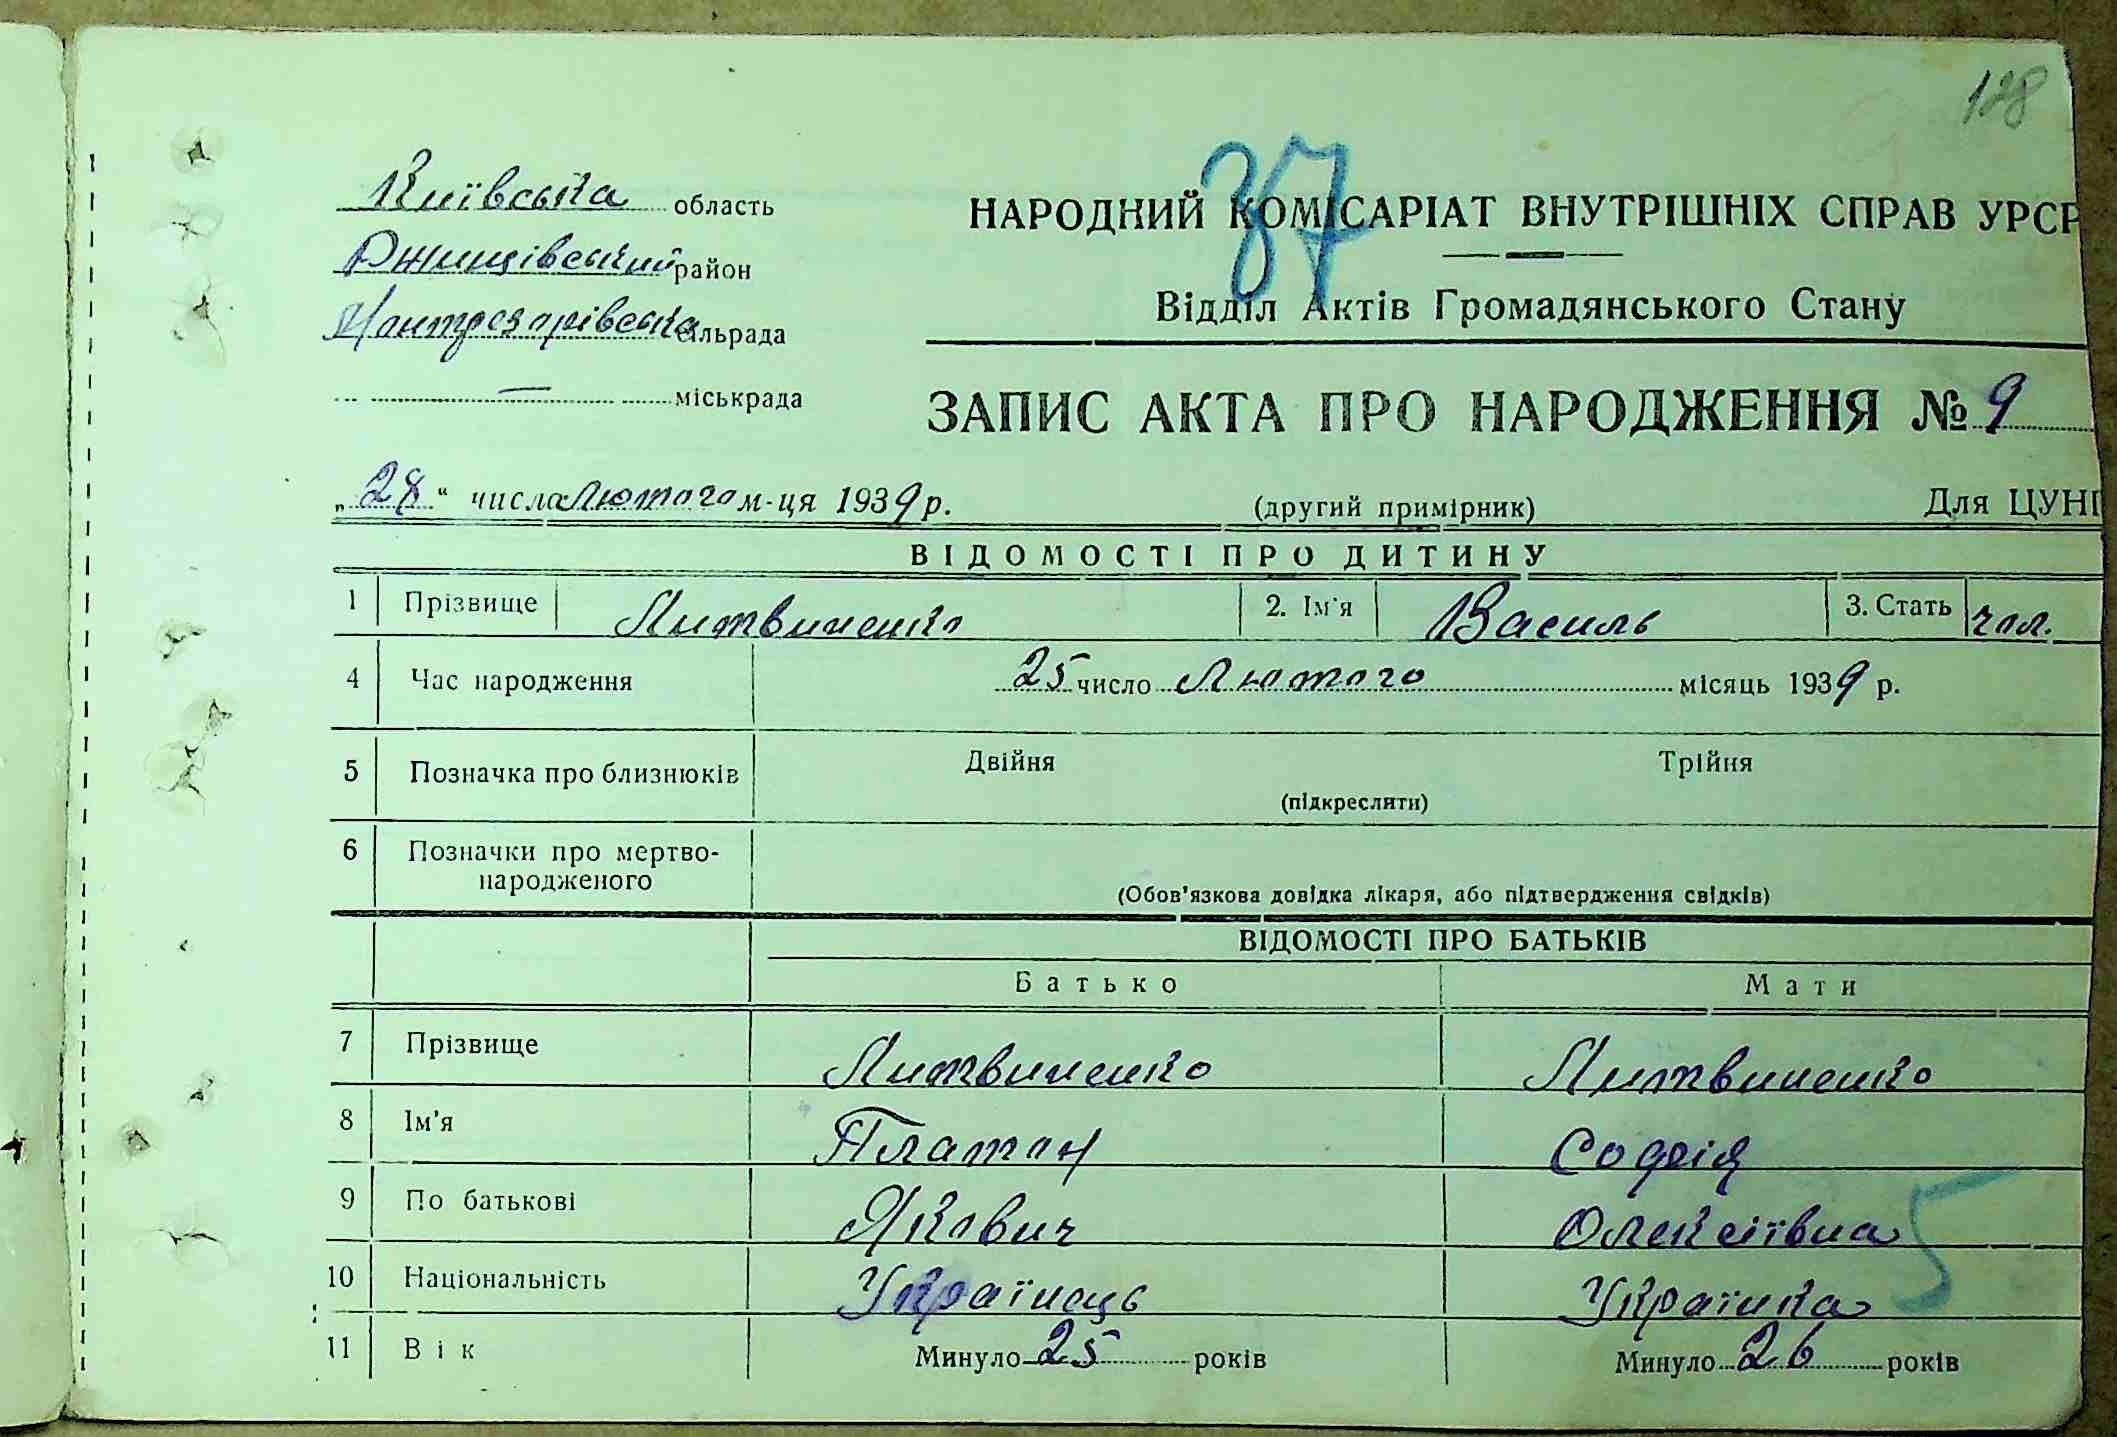 128
37
Київська область
Ржищівський район
сільрада
— міськрада
НАРОДНИЙ КОМІСАРІАТ ВНУТРІШНІХ СПРАВ УРСР
Відділ Актів Громадянського Стану
ЗАПИС АКТА ПРО НАРОДЖЕННЯ № 9
„28“ числа Лютого м-ця 1939 р. (другий примірник) Для ЦУН
ВІДОМОСТІ ПРО ДИТИНУ
1 Прізвище Литвиненко 2. Ім'я Василь 3. Стать чол.
4 Час народження 25 число Лютого місяць 1939 р.
5 Позначка про близнюків Двійня Трійня
(підкреслити)
6 Позначки про мертво-
народженого
(Обов'язкова довідка лікаря, або підтвердження свідків)
ВІДОМОСТІ ПРО БАТЬКІВ
Батько Мати
7 Прізвище Литвиненко Литвиненко
8 Ім'я Платон Софія
9 По батькові Якович Олексіївна
5
10 Національність Українець Українка
11 Вік Минуло 25 років Минуло 26 років